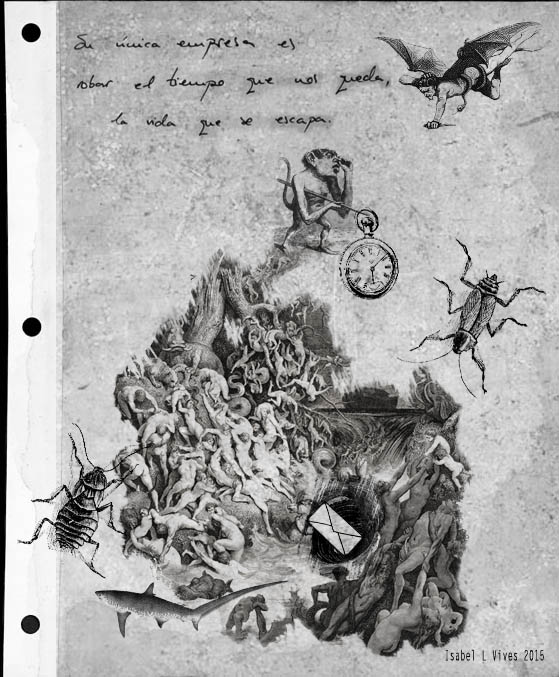 Su única empresa es
robar el tiempo que nos queda,
la vida que se escapa.
Isabel L Vives 2015